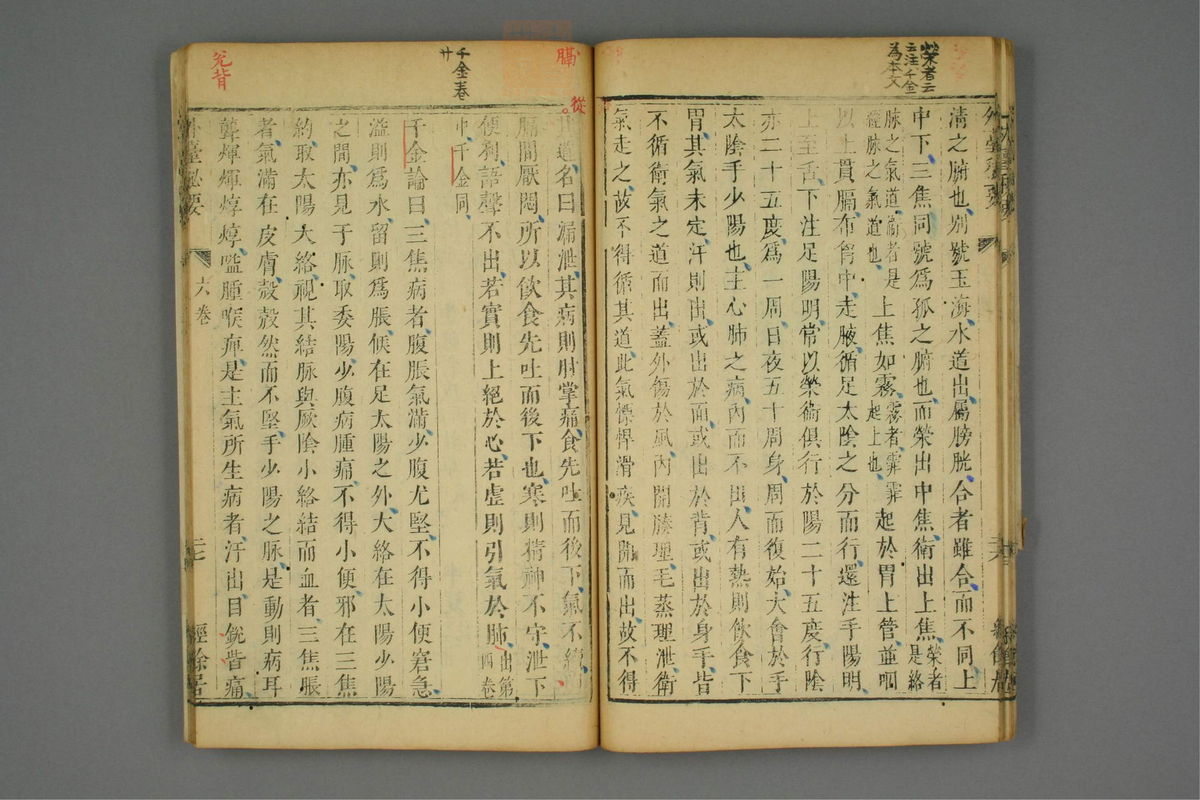 榮者云
云注千金
為本文
清之腑也別號玉海水道出屬膀胱合者雖合而不同上
中下三焦同號爲孤之腑也而榮出中焦衛出上焦榮者是絡
脉之氣道衛者是經脉之氣道也上焦如霧霧者霏霏起上也起於胃上管並咽
以上貫膈布胷中走腋循足太陰之分而行還注手陽明
上至舌下注足陽明常以榮衛俱行於陽二十五度行陰
亦二十五度爲一周日夜五十周身周而復始大會於手
太陰手少陽也主心肺之病內而不出人有熱則飲食下
胃其氣未定汗則出或出於面或出於背或出於身手皆
不循衛氣之道而出蓋外傷於風內開腠理毛蒸理泄衛
氣走之故不得循其道此氣慓悍滑疾見開而出故不得
膈
從
其道名曰漏泄其病則肘掌痛食先吐而後下氣不續
膈間厭悶所以飲食先吐而後下也寒則精神不守泄下
便利語聲不出若實則上絕於心若虛則引氣於肺出第四卷
中千金同
千金卷
廿
千金論曰三焦病者腹脹氣滿少腹尤堅不得小便窘急
溢則爲水留則爲脹候在足太陽之外大絡在太陽少陽
之間亦見于脉取委陽少腹病腫痛不得小便邪在三焦
約取太陽大絡視其結脉與厥陰小絡結而血者三焦脹
者氣滿在皮膚殼殼然而不堅手少陽之脉是動則病耳
聾煇煇焞焞嗌腫喉痺是主氣所生病者汗出目銳眥痛
外臺秘要
六卷
二七
經餘居